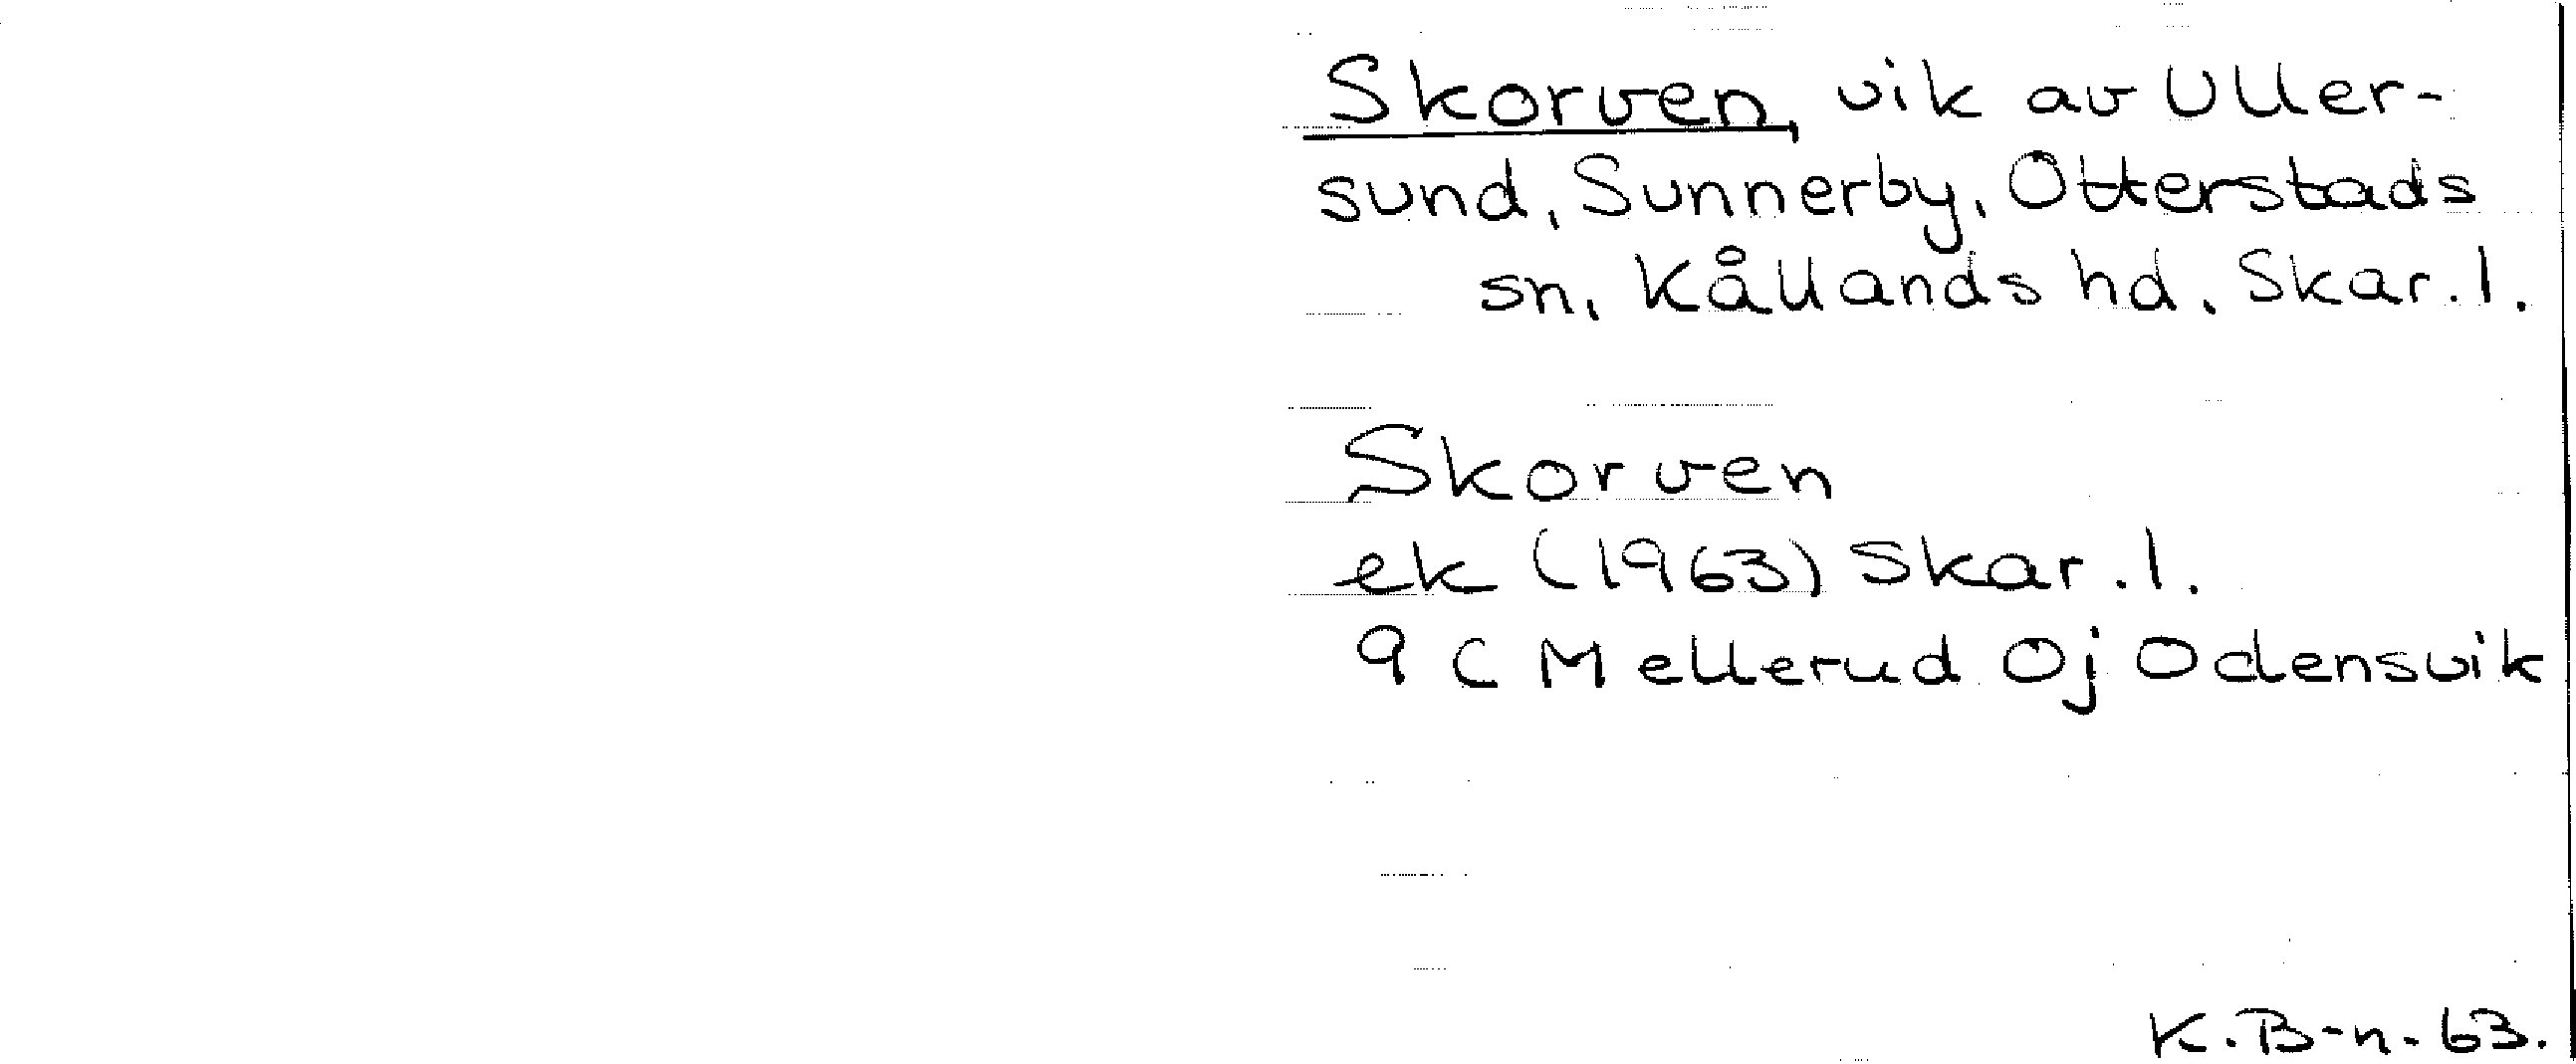 Skorven, vik av Uller-
sund, Sunnerby, Otterstads
sn, Kållands hd. Skar. l.
Skorven
ek (1963) Skar. l.
9 C Mellerud 0j Odensvik
K. B-n. 63.